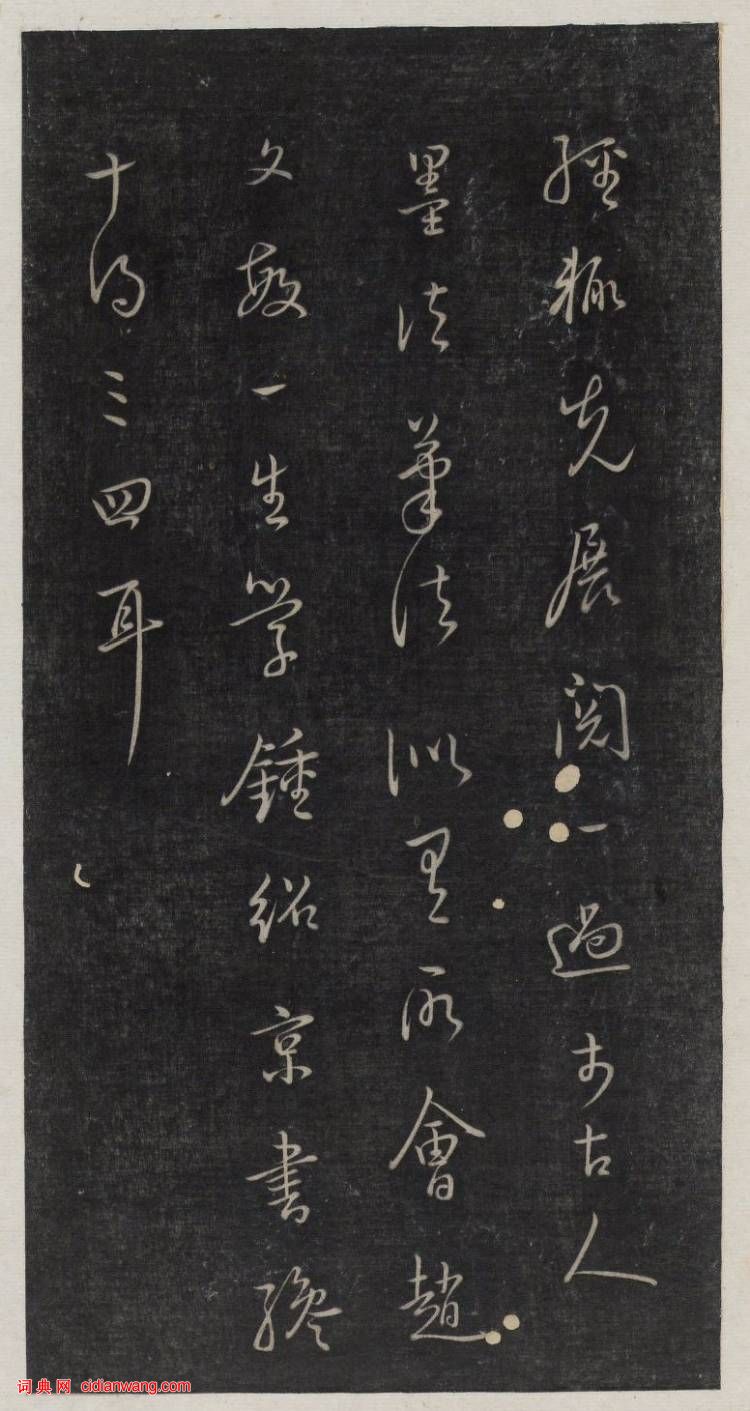 經輒先展閱一過于古人
墨法筆法似有所會趙
文敏一生學鍾紹京書纔
十得三四耳
词典网 cidianwang.com